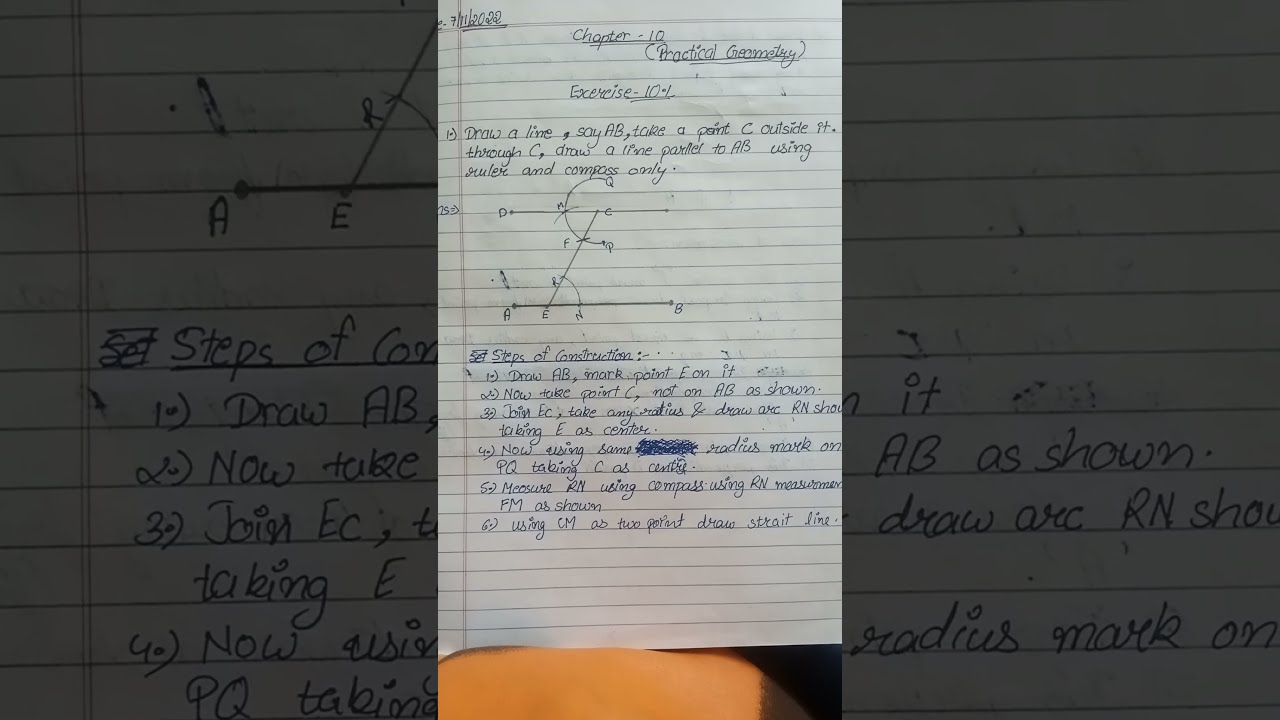 7/11/2022
Chapter - 10
(Practical Geometry)
Exercise - 10.1
1.) Draw a line, say AB, take a point C outside it.
through C, draw a line parllel to AB using
ruler and compass only.
Q
D M C
F P
R
A E N B
Steps of Construction :-
1.) Draw AB, mark point E on it
2.) Now take point C, not on AB as shown.
3.) Join Ec, take any radius & draw arc RN show
taking E as center.
4.) Now using same radius mark on
PQ taking C as centre.
5.) Measure RN using compass. using RN measuremen
FM as shown
6.) using CM as two point draw strait line.
R
A E
Steps of Con
1.) Draw AB,
2.) Now take
3.) Join Ec, t
taking E
4.) Now usin
PQ taking
it
AB as shown.
draw arc RN show
radius mark on